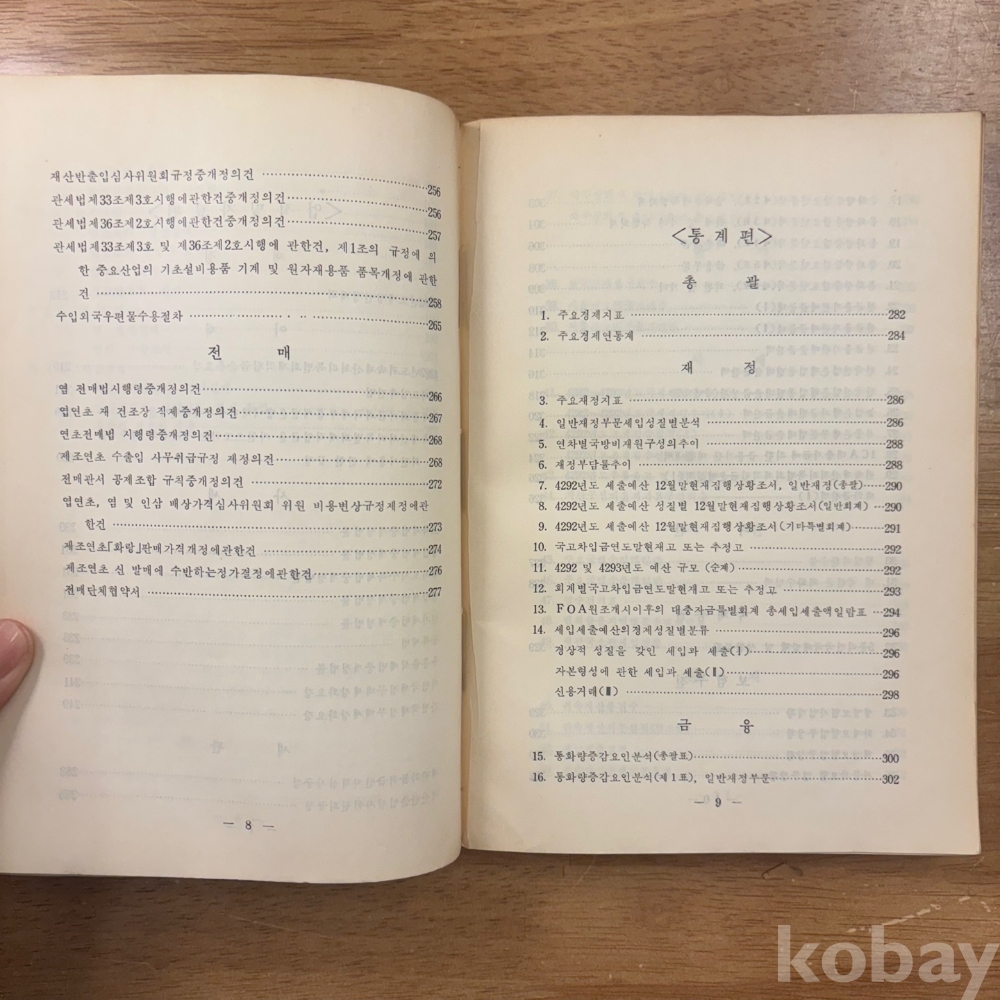 재산반출입심사위원회규정중개정의건 ……………………256
관세법제33조제3호시행에관한건중개정의건 ……………………256
관세법제36조제2호시행에관한건중개정의건 ……………………257
관세법제33조제3호 및 제36조제2호시행에 관한건, 제1조의 규정에 의
한 중요산업의 기초설비용품 기계 및 원자재용품 품목개정에 관한
건 ……………………258
수입외국우편물수용절차 ……………………265
전 매
염 전매법시행령중개정의건 ……………………266
엽연초 재 건조장 직제중개정의건 ……………………267
연초전매법 시행령중개정의건 ……………………268
제조연초 수출입 사무취급규정 제정의건 ……………………268
전매관서 공제조합 규칙중개정의건 ……………………272
엽연초, 염 및 인삼 배상가격심사위원회 위원 비용변상규정제정에관
한건 ……………………273
제조연초「화랑」판매가격개정에관한건 ……………………274
제조연초 신 발매에 수반하는정가결정에관한건 ……………………276
전매단체협약서 ……………………277
— 8 —
<통계편>
총 괄
1. 주요경제지표 ……………………282
2. 주요경제연통계 ……………………284
재 정
3. 주요재정지표 ……………………286
4. 일반재정부문세입성질별분석 ……………………286
5. 연차별국방비재원구성의추이 ……………………288
6. 재정부담률추이 ……………………288
7. 4292년도 세출예산 12월말현재집행상황조서, 일반재정(총괄) ……290
8. 4292년도 세출예산 성질별 12월말현재집행상황조서(일반회계) ……290
9. 4292년도 세출예산 12월말현재집행상황조서(기타특별회계) ……291
10. 국고차입금연도말현재고 또는 추정고 ……………………292
11. 4292 및 4293년도 예산 규모 (순계) ……………………292
12. 회계별국고차입금연도말현재고 또는 추정고 ……………………293
13. FOA원조개시이후의 대충자금특별회계 총세입세출액일람표 ……294
14. 세입세출예산의경제성질별분류 ……………………296
경상적 성질을 갖인 세입과 세출(Ⅰ) ……………………296
자본형성에 관한 세입과 세출(Ⅱ) ……………………296
신용거래(Ⅲ) ……………………298
금 융
15. 통화량증감요인분석(총괄표) ……………………300
16. 통화량증감요인분석(제1표), 일반재정부문 ……………………302
— 9 —
kobay